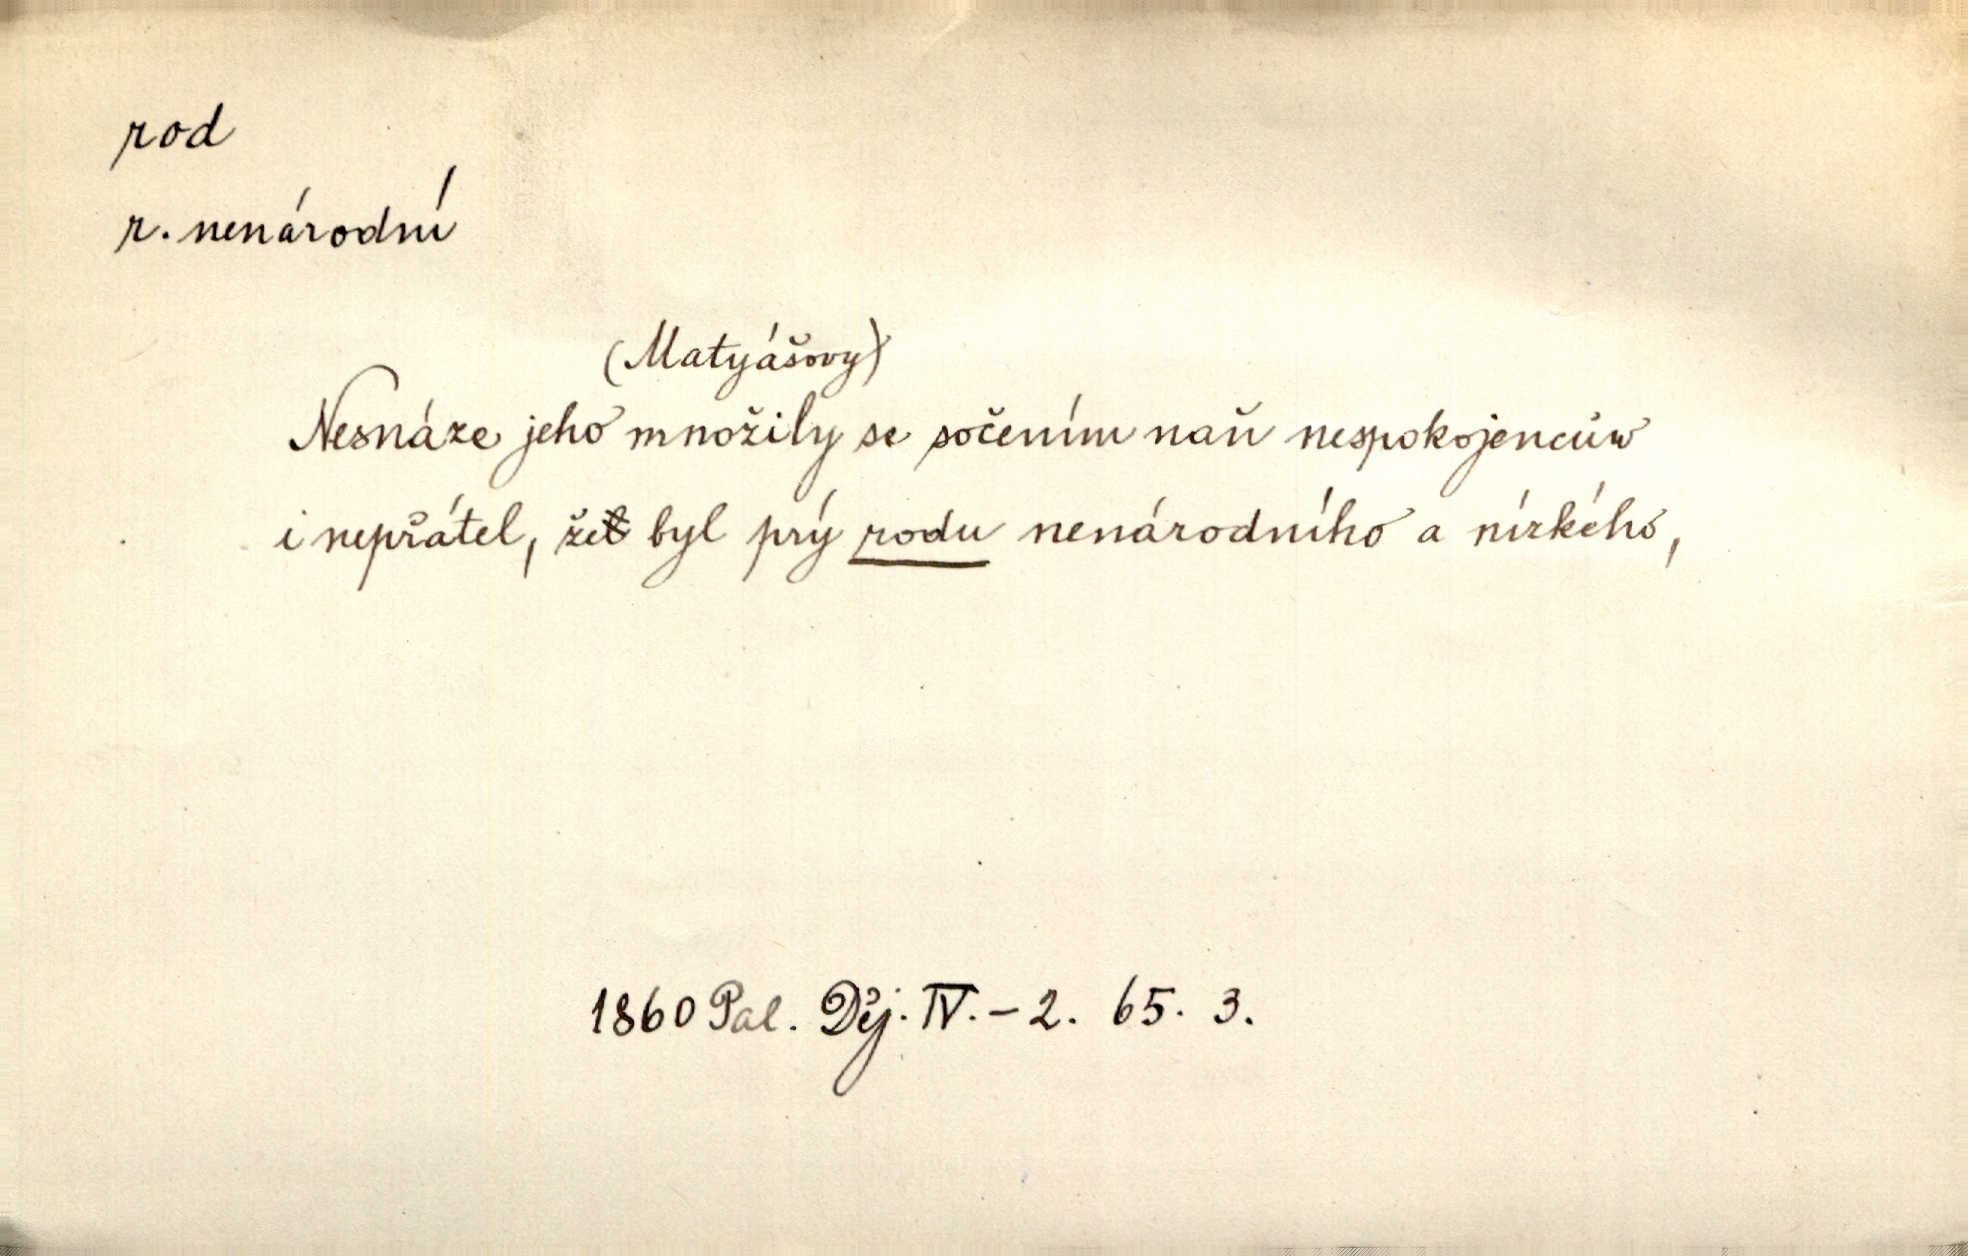 rod
r. nenárodní
(Matyášovy)
Nesnáze jeho množily se sočením naň nespokojencůw
i nepřátel, že byl prý rodu nenárodního a nízkého,
1860 Pal. Děj. IV. – 2. 65. 3.